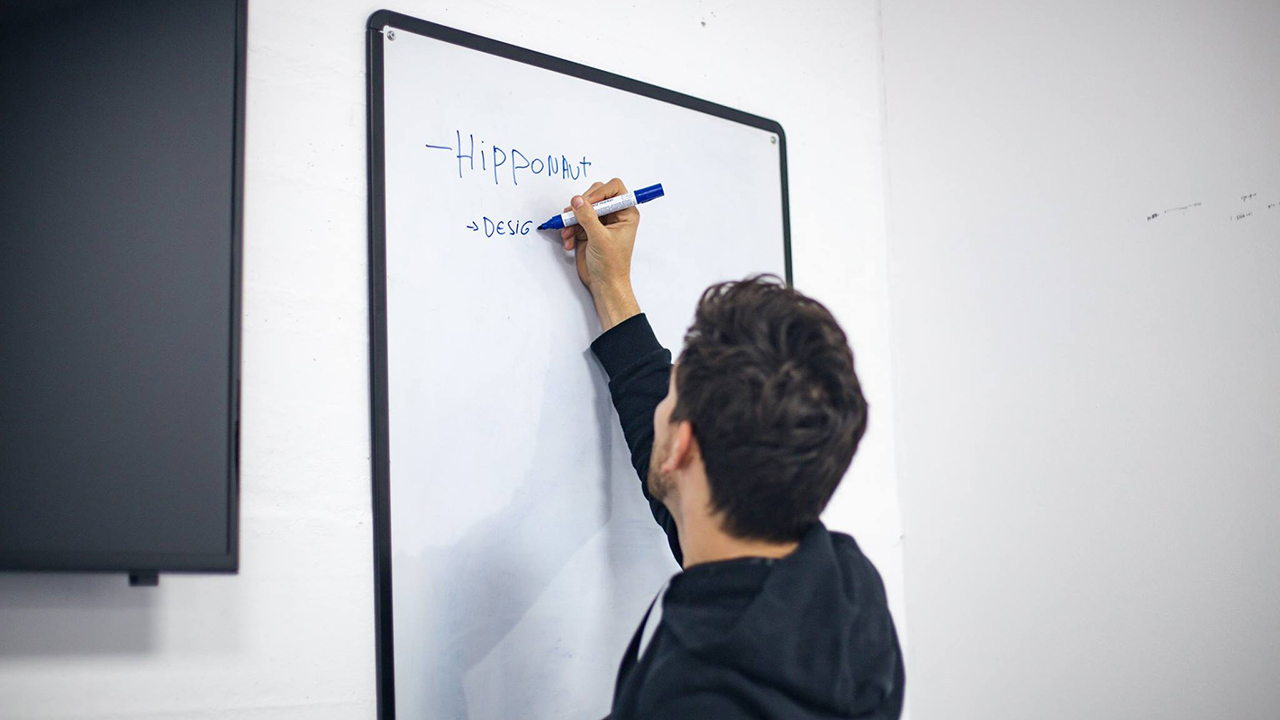 - Hipponaut
→ DESIG